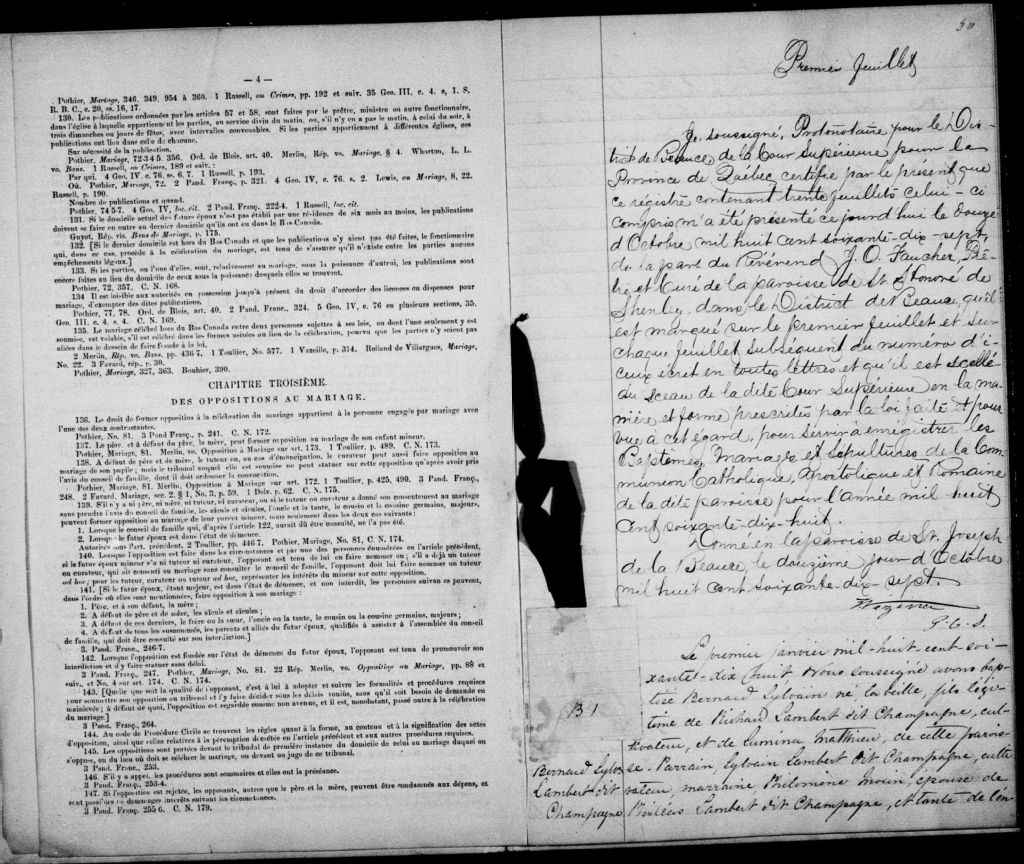 — 4 —
Pothier, Mariage, 346, 349, 354 à 360. 1 Russell, on Crimes, pp. 192 et suiv. 35 Geo. III, c. 4, s, 1. S.
R. B. C., c. 20, ss. 16, 17.
130. Les publications ordonnées par les articles 57 et 58, sont faites par le prêtre, ministre ou autre fonctionnaire,
dans l'église à laquelle appartiennent les parties, au service divin du matin, ou, s'il n'y en a pas le matin, à celui du soir, à
trois dimanches ou jours de fêtes, avec intervalles convenables. Si les parties appartiennent à différentes églises, ces
publications ont lieu dans celle de chacune.
Sur nécessité de la publication.
Pothier, Mariage, 72 3 4 5. 356. Ord. de Blois, art. 40. Merlin, Rép. vo. Mariage, § 4. Wharton, L. L.
vo. Bans. 1 Russell, on Crimes, 189 et suiv. :
Par qui. 4 Geo. IV. c. 76, ss. 6, 7. 1 Russell, p. 193.
Où. Pothier, Mariage, 72. 2 Pand. Franç., p. 321. 4 Geo. IV, c. 76, s. 2. Lewis, on Mariage, 8, 22.
Russell, p. 190.
Nombre de publications et quand.
Pothier, 74 5-7. 4 Geo. IV, loc. cit. 2 Pand. Franç., 222-4. 1 Russell, loc. cit.
131. Si le domicile actuel des futurs époux n'est pas établi par une résidence de six mois au moins, les publications
doivent se faire en outre au dernier domicile qu'ils ont eu dans le Bas-Canada.
Guyot, Rép. vis. Bans de Mariage, p. 175.
132. [Si le dernier domicile est hors du Bas-Canada et que les publications n'y aient pas été faites, le fonctionnaire
qui, dans ce cas, procède à la célébration du mariage, est tenu de s'assurer qu'il n'existe entre les parties aucuns
empêchements légaux.]
133. Si les parties, ou l'une d'elles, sont, relativement au mariage, sous la puissance d'autrui, les publications sont
encore faites au lieu du domicile de ceux sous la puissance desquels elles se trouvent.
Pothier, 72, 357. C. N. 168.
134 Il est loisible aux autorités en possession jusqu'à présent du droit d'accorder des licences ou dispenses pour
mariage, d'exempter des dites publications.
Pothier, 77, 78. Ord. de Blois, art. 40. 2 Pand. Franc., 324. 5 Geo. IV, c. 76 en plusieurs sections, 35,
Geo. III. c. 4, s. 4. C. N. 169.
135. Le mariage célébré hors du Bas Canada entre deux personnes sujettes à ses lois, ou dont l'une seulement y est
soumise, est valable, s'il est célébré dans les formes usitées au lieu de la célébration, pourvu que les parties n'y soient pas
allées dans le dessein de faire fraude à la loi.
2 Merlin, Rép. vo. Bans, pp. 436 7. 1 Toullier, No. 577. 1 Vazeille, p. 314. Rolland de Villargues, Mariage,
No. 22. 3 Favard, rép., p. 30.
Pothier, Mariage, 327, 363. Bouhier, 390.
CHAPITRE TROISIÈME.
DES OPPOSITIONS AU MARIAGE.
136. Le droit de former opposition à la célébration du mariage appartient à la personne engagée par mariage avec
l'une des deux contractantes.
Pothier, No. 81. 3 Pand Franç., p. 241. C. N. 172.
137. Le père, et à défaut du père, la mère, peut former opposition au mariage de son enfant mineur.
Pothier, Mariage, 81. Merlin, vo. Opposition à Mariage sur art. 173. 1 Toullier, p. 489. C. N. 173.
138. A défaut de père et de mère, le tuteur ou, au cas d'émancipation, le curateur peut aussi faire opposition au
mariage de son pupile ; mais le tribunal auquel elle est soumise ne peut statuer sur cette opposition qu'après avoir pris
l'avis du conseil de famille, dont il doit ordonner la convocation.
Pothier, Mariage, 81. Merlin, Opposition à Mariage sur art. 172. 1 Toullier, p. 425, 490. 3 Pand. Franç.,
248. 2 Favard, Mariage, sec. 2. § 1, No. 3, p. 59. 1 Delv. p. 62. C. N. 175.
139. S'il n'y a ni père, ni mère, ni tuteur, ni curateur, ou si le tuteur ou curateur a donné son consentement au mariage
sans prendre l'avis du conseil de famille, les aïeuls et aïeules, l'oncle et la tante, le cousin et la cousine germains, majeurs,
peuvent former opposition au mariage de leur parent mineur, mais seulement dans les deux cas suivants :
1. Lorsque le conseil de famille qui, d'après l'article 122, aurait dû être consulté, ne l'a pas été.
2. Lorsque le futur époux est dans l'état de démence.
Autorités sous l'art. précédent, 2 Toullier, pp. 446 7. Pothier, Mariage, No. 81, C. N. 174.
140. Lorsque l'opposition est faite dans les circonstances et par une des personnes énumérées en l'article précédent,
si le futur époux mineur n'a ni tuteur ni curateur, l'opposant est tenu de lui en faire nommer un ; s'il a déjà un tuteur
ou curateur, qui ait consenti au mariage sans consulter le conseil de famille, l'opposant doit lui faire nommer un tuteur
ad hoc ; pour les tuteur, curateur ou tuteur ad hoc, représenter les intérêts du mineur sur cette opposition.
141. [Si le futur époux, étant majeur, est dans l'état de démence, et non interdit, les personnes suivantes peuvent,
dans l'ordre où elles sont mentionnées, faire opposition à son mariage :
1. Père, et à son défaut, la mère ;
2. A défaut de père et de mère, les aïeuls et aïeules ;
3. A défaut de ces derniers, le frère ou la sœur, l'oncle ou la tante, le cousin ou la cousine germains, majeurs ;
4. A défaut de tous les susnommés, les parents et alliés du futur époux, qualifiés à assister à l'assemblée du conseil
de famille, qui doit être consulté sur son interdiction.]
3 Pand. Franc., 246-7.
142. Lorsque l'opposition est fondée sur l'état de démence du futur époux, l'opposant est tenu de promouvoir son
interdiction et d'y faire statuer sans délai.
3 Pand. Franç., 247. Pothier, Mariage, No. 81. 22 Rép. Merlin, vo. Opposition au Mariage, pp. 88 et
suiv., et No. 4 sur art. 174. C. N. 174.
143. [Quelle que soit la qualité de l'opposant, c'est à lui à adopter et suivre les formalités et procédures requises
pour soumettre son opposition au tribunal et l'y faire décider sous les délais voulus, sans qu'il soit besoin de demande en
mainlevée ; à défaut de quoi, l'opposition est regardée comme non avenue, et il est, nonobstant, passé outre à la célébration
du mariage.]
3 Pand. Franç., 264.
144. Au code de Procédure Civile se trouvent les règles quant à la forme, au contenu et à la signification des actes
d'opposition, ainsi que celles relatives à la péremption décrétée en l'article précédent et aux autres procédures requises.
145. Les oppositions sont portées devant le tribunal de première instance du domicile de celui au mariage duquel on
s'oppose, ou du lieu où doit se célébrer le mariage, ou devant un juge de ce tribunal.
3 Pand. Franc., 253.
146. S'il y a appel, les procédures sont sommaires et elles ont la préséance.
3 Pand. Franç., 253-4.
147. Si l'opposition est rejetée, les opposants, autres que le père et la mère, peuvent être condamnés aux dépens, et
sont passibles de dommages intérêts suivant les circonstances.
3 Pand. Franç. 255 6. C. N. 179.
30
Premier feuillet
Je, soussigné, Protonotaire pour le Dis-
trict de Beauce, de la Cour Supérieure pour la
Province de Québec certifie par le présent que
ce registre contenant trente feuillets celui-ci
compris m'a été présenté ce jourd'hui le douze
d'Octobre mil huit cent soixante-dix-sept,
de la part du Révérend J. O. Faucher, Prê-
tre et Curé de la paroisse de St Honoré de
Shenley, dans le District de Beauce, qu'il
est marqué sur le premier feuillet et sur
chaque feuillet subséquent du numéro d'i-
ceux écrit en toutes lettres et qu'il est scellé
du sceau de la dite Cour Supérieure en la ma-
nière et forme prescrites par la loi faite et pour-
vue à cet égard, pour servir à enregistrer les
Baptêmes, Mariages et sépultures de la Com-
munion Catholique, Apostolique et Romaine
de la dite paroisse pour l'année mil huit
cent soixante-dix-huit.
Donné en la paroisse de St. Joseph
de la Beauce, le douzième jour d'Octobre
mil huit cent soixante-dix-sept.
Vézina
P. C. S.
B 1
Bernard Sylvain
Lambert dit
Champagne
Le premier janvier mil-huit-cent-soi-
xante-dix-huit, Nous soussigné avons bap-
tisé Bernard Sylvain né la veille, fils légi-
time de Richard Lambert dit Champagne, cul-
tivateur, et de Lumina Mathieu, de cette parois-
se. Parrain, Sylvain Lambert dit Champagne, culti-
vateur, marraine, Philomène Morin, épouse de
Lambert dit Champagne, et tante de l'en-